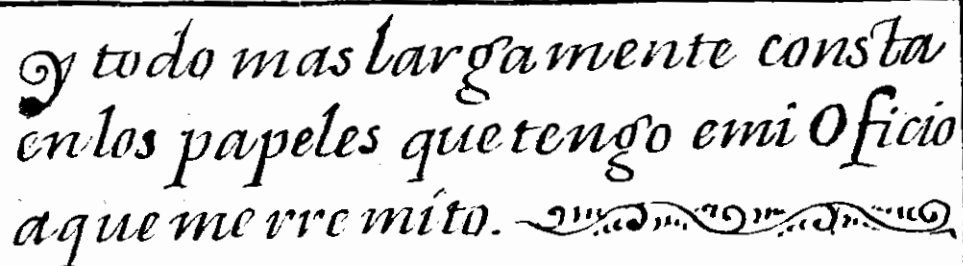 y todo mas largamente consta
en los papeles que tengo emi Oficio
a que me rremito.